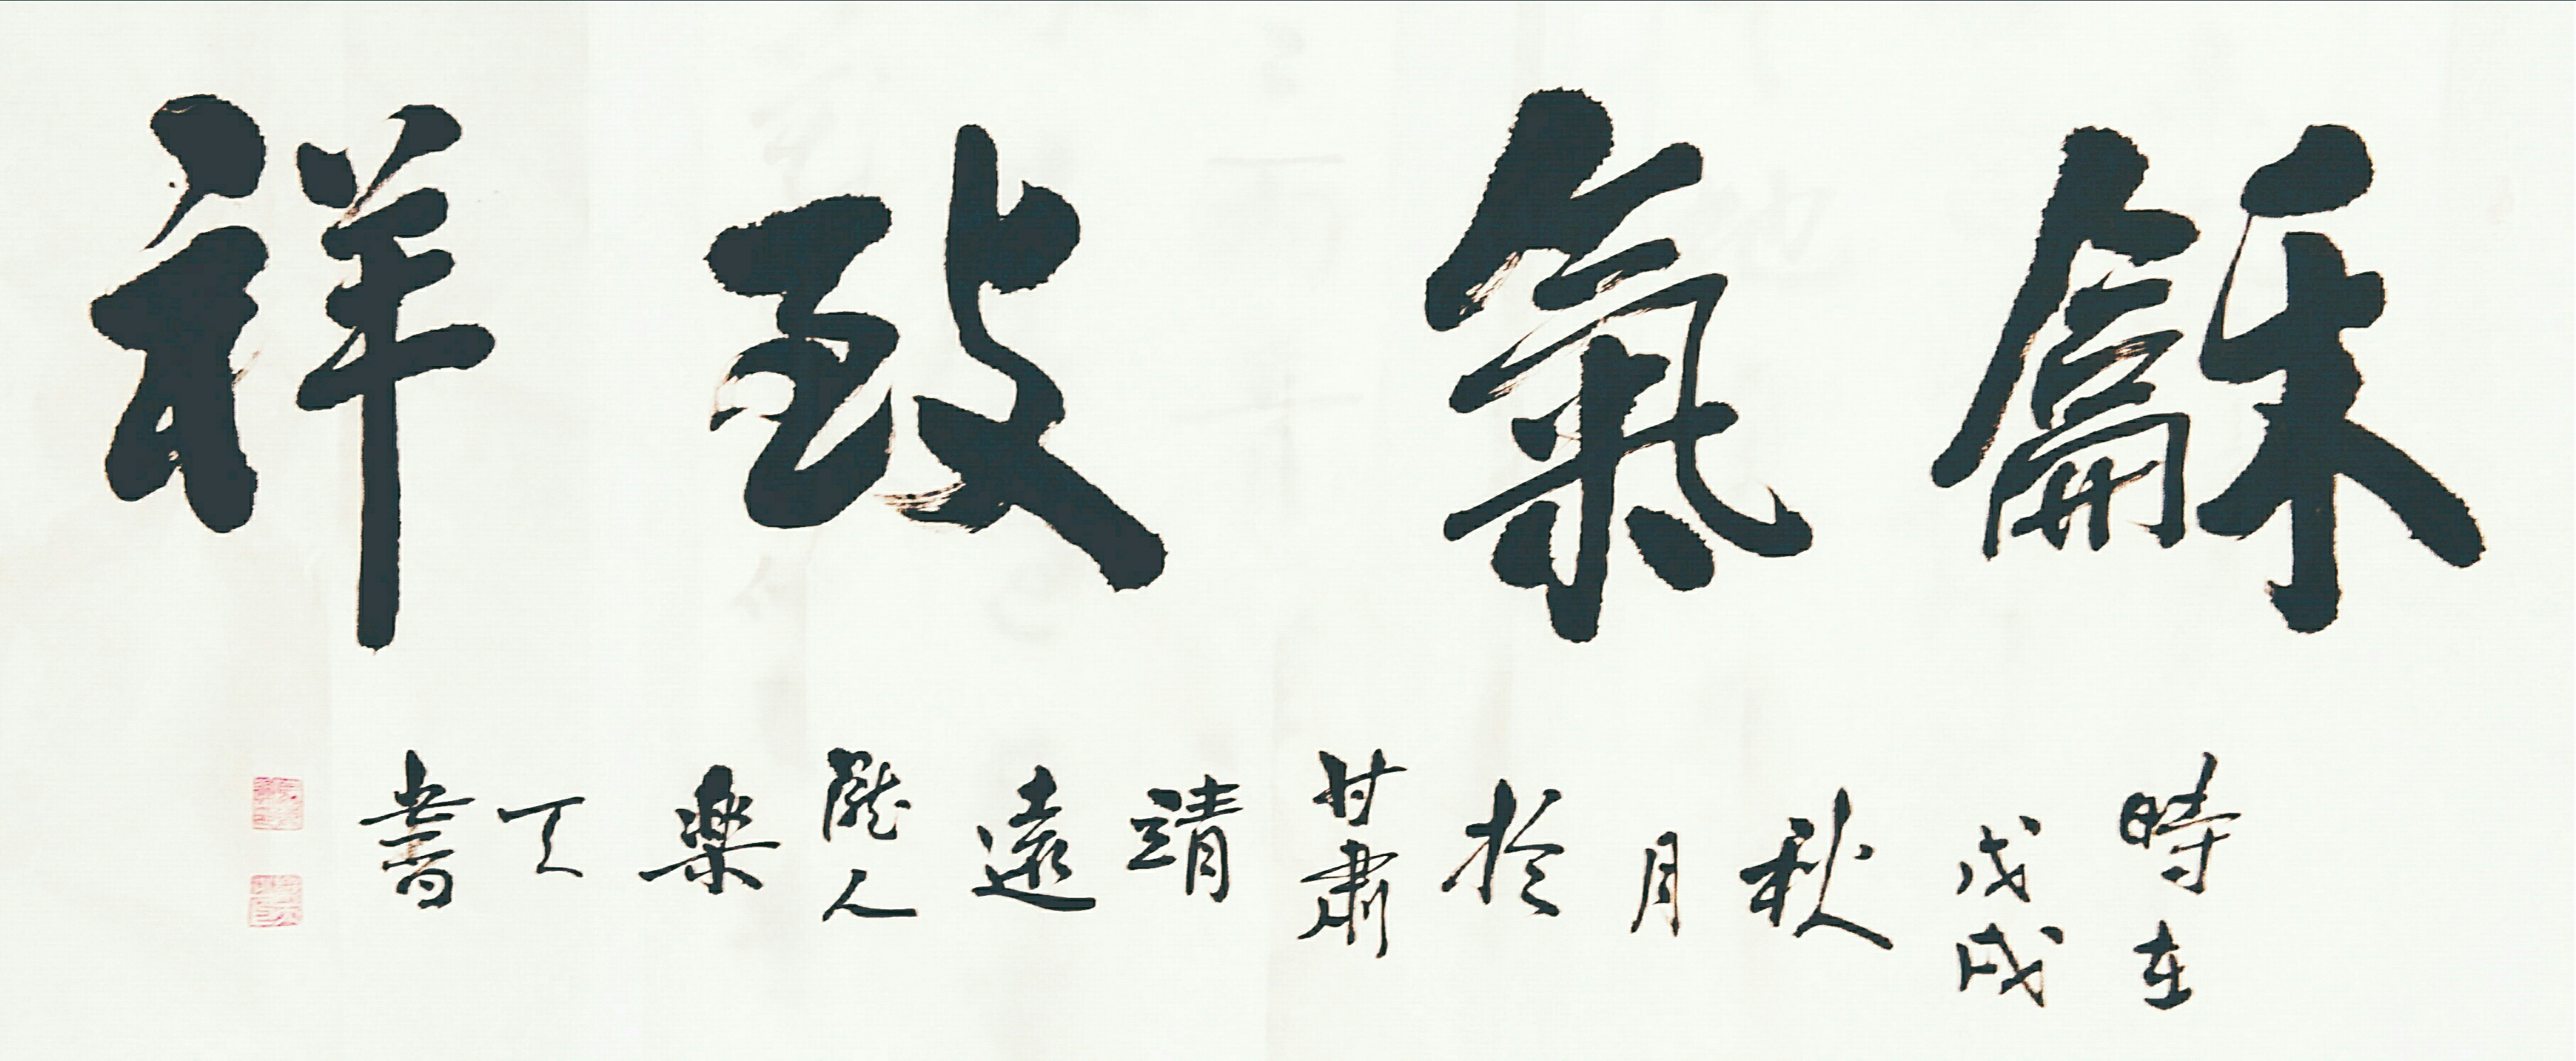 龢氣致祥
時在戊戌秋月於甘肅靖遠隴人樂天書